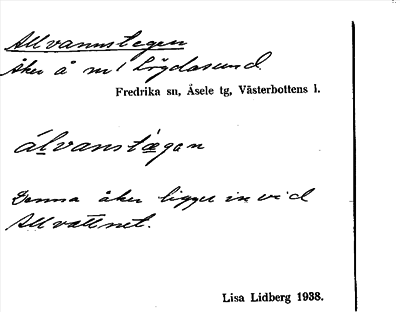 Allvannstegen
Åker å nr 1 Lögdasund.
Fredrika sn, Åsele tg, Västerbottens l.
álvanstǽgan
Denna åker ligger in vid
Allvattnet.
Lisa Lidberg 1938.